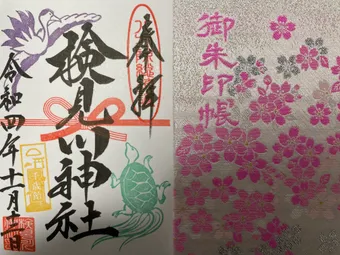 奉拝
検見川神社
令和四年十二月一日
御朱印帳